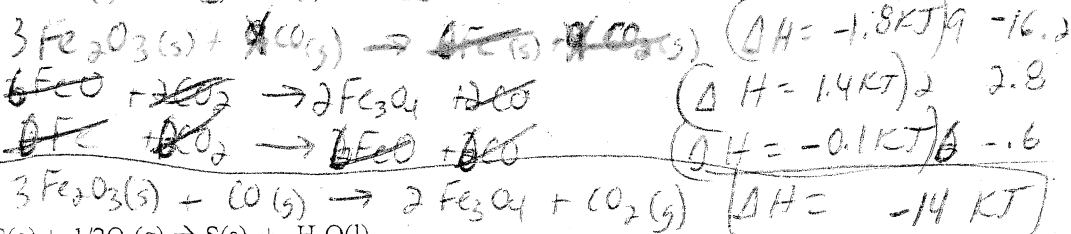 3 Fe2O3(s) + 9CO(g) → 6Fe(s) + 9CO2(g) (ΔH = -1.8KJ)9 -16.2
6FeO + 2CO2 → 2Fe3O4 + 2CO (ΔH = 1.4KJ)2 2.8
6Fe + 6CO2 → 6FeO + 6CO (ΔH = -0.1KJ)6 -.6
3 Fe2O3(s) + CO(g) → 2 Fe3O4 + CO2(g) ΔH = -14 KJ